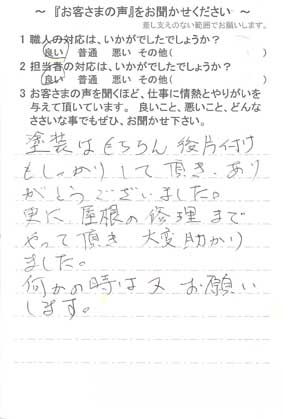 ～『お客さまの声』をお聞かせください～
差し支えのない範囲でお願いします。
1 職人の対応は、いかがでしたでしょうか?
良い 普通 悪い その他( )
2 担当者の対応は、いかがでしたでしょうか?
良い 普通 悪い その他( )
3 お客さまの声を聞くほど、仕事に情熱とやりがいを
与えて頂いています。 良いこと、悪いこと、どんな
ささいな事でもぜひ、お聞かせ下さい。
塗装はもちろん後片付け
もしっかりして頂き、あり
がとうございました。
更に屋根の修理まで
やって頂き 大変助かり
ました。
何かの時は又お願い
します。